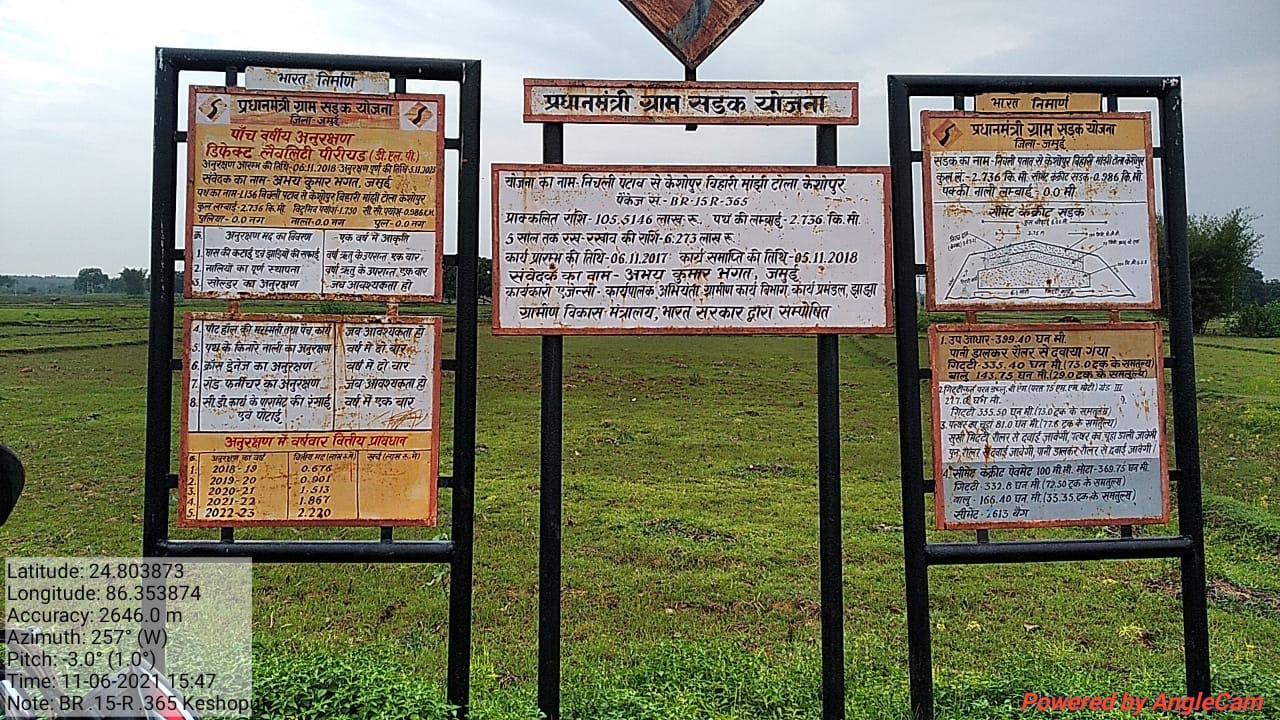 भारत निर्माण
प्रधानमंत्री ग्राम सड़क योजना
जिला-जमुई
पाँच वर्षीय अनुरक्षण
डिफेक्ट लैबलिटी पीरीयड (डी.एल.पी.)
अनुरक्षण आरम्भ की तिथि-06.11.2018 अनुरक्षण पूर्ण की तिथि-5.11.2023
संवेदक का नाम- अभय कुमार भगत, जमुई
पथ का नाम- निचली पटाव से केशोपुर बिहारी मांझी टोला केशोपुर
कुल लम्बाई- 2.736 कि.मी. बिटुमिन पथांश-1.750 सी.सी. पथांश-0.986K.M.
पुलिया- 0.0 नग पुल-0.0 नग
क्र. अनुरक्षण मद का विवरण एक वर्ष में आकृति
1. घास की कटाई एवं झाड़ियों की सफाई वर्षा ऋतु के उपरान्त एक बार
2. नालियों का पूर्ण स्थापना वर्षा ऋतु के उपरान्त एक बार
3. सोल्डर का अनुरक्षण जब आवश्यकता हो
4. पॉट हॉल की मरम्मती तथा पैच कार्य जब आवश्यकता हो
5. पथ के किनारे नाली का अनुरक्षण वर्ष में दो बार
6. क्रॉस ड्रेनेज का अनुरक्षण वर्ष में दो बार
7. रोड फर्नीचर का अनुरक्षण जब आवश्यकता हो
8. सी.डी. कार्य के पारामेट की रंगाई वर्ष में एक बार
एवं पोटाई
अनुरक्षण में वर्षवार वित्तीय प्रावधान
क्र. अनुरक्षण का वर्ष वित्तीय मद (लाख रू. में) खर्च (लाख रू. में)
1. 2018-19 0.676
2. 2019-20 0.901
3. 2020-21 1.513
4. 2021-22 1.867
5. 2022-23 2.220
प्रधानमंत्री ग्राम सड़क योजना
योजना का नाम- निचली पटाव से केशोपुर बिहारी मांझी टोला केशोपुर
पैकेज सं.- BR-15R-365
प्राक्कलित राशि- 105.5146 लाख रू. पथ की लम्बाई- 2.736 कि.मी.
5 साल तक रख-रखाव की राशि-6.273 लाख रू.
कार्य प्रारम्भ की तिथि-06.11.2017 कार्य समाप्ति की तिथि-05.11.2018
संवेदक का नाम- अभय कुमार भगत, जमुई
कार्यकारी एजेन्सी- कार्यपालक अभियंता ग्रामीण कार्य विभाग, कार्य प्रमंडल, झाझा
ग्रामीण विकास मंत्रालय, भारत सरकार द्वारा सम्पोषित
भारत निर्माण
प्रधानमंत्री ग्राम सड़क योजना
जिला-जमुई
सड़क का नाम- निचली पटाव से केशोपुर बिहारी मांझी टोला केशोपुर
कुल लं.- 2.736 कि.मी. सीमेंट कंक्रीट सड़क-0.986 कि.मी.
पक्की नाली लम्बाई- 0.0 मी.
सीमेंट कंक्रीट सड़क
1. उप आधार-399.40 घन मी.
पानी डालकर रौलर से दबाया गया
गिट्टी- 335.40 घन मी. (75.0 ट्रक के समतुल्य)
बालू- 143.75 घन मी. (29.0 ट्रक के समतुल्य)
गिट्टी 335.50 घन मी. (73.0 ट्रक के समतुल्य)
3. पत्थर का चूड़ा 81.0 घन मी. (77.6 ट्रक के समतुल्य)
सुखी गिट्टी रौलर से दबाई जावेगी, पत्थर का चूड़ा डाली जावेगी
पुनः रौलर से दबाई जावेगी, पानी डालकर रौलर से दबाई जावेगी
4. सीमेंट कंक्रीट पेवमेंट 100 मी.मी. मोटा-369.75 घन मी.
गिट्टी- 332.8 घन मी. (72.50 ट्रक के समतुल्य)
बालू- 166.40 घन मी. (33.35 ट्रक के समतुल्य)
सीमेंट- 2613 बैग
Latitude: 24.803873
Longitude: 86.353874
Accuracy: 2646.0 m
Azimuth: 257° (W)
Pitch: -3.0° (1.0°)
Time: 11-06-2021 15:47
Note: BR .15-R .365 Keshopur
Powered by AngleCam